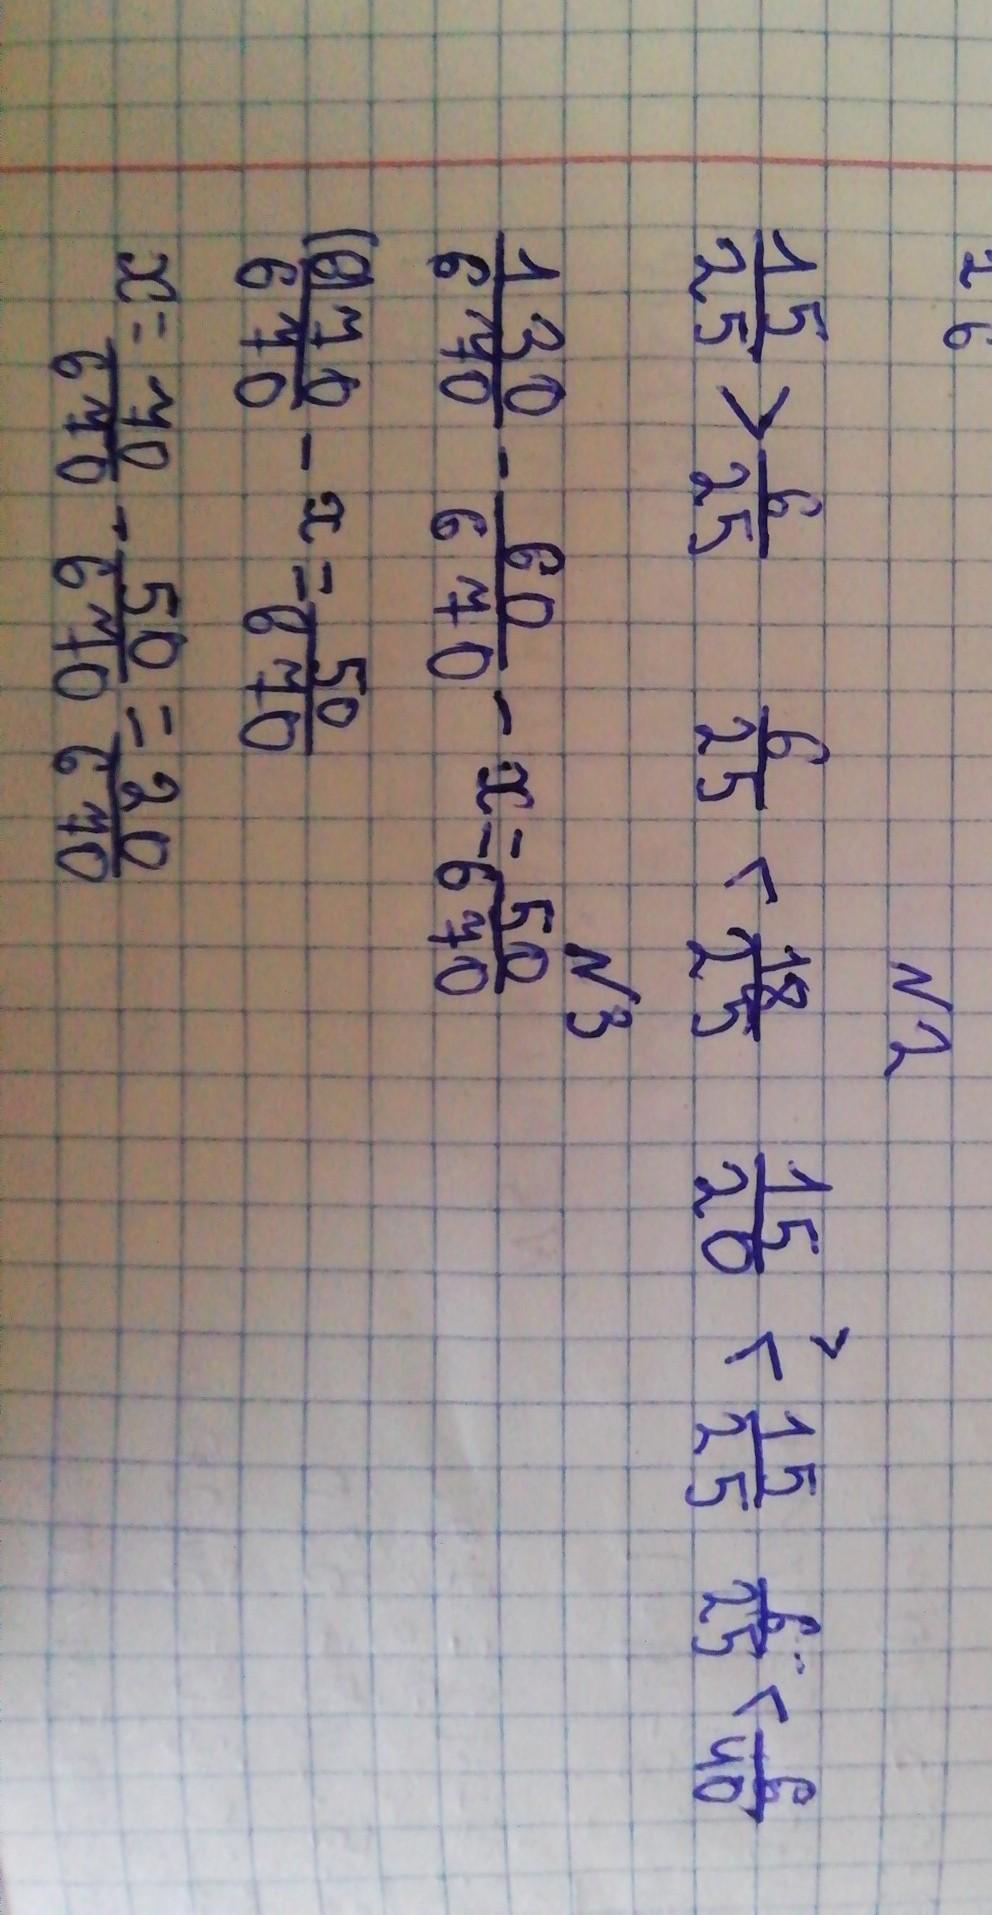 26
N2
15/25 > 6/25 6/25 < 18/25 15/20 < > 15/25 6/25 < 6/40
N3
130/670 - 60/670 - x = 50/670
70/670 - x = 50/670
x = 70/670 - 50/670 = 20/670